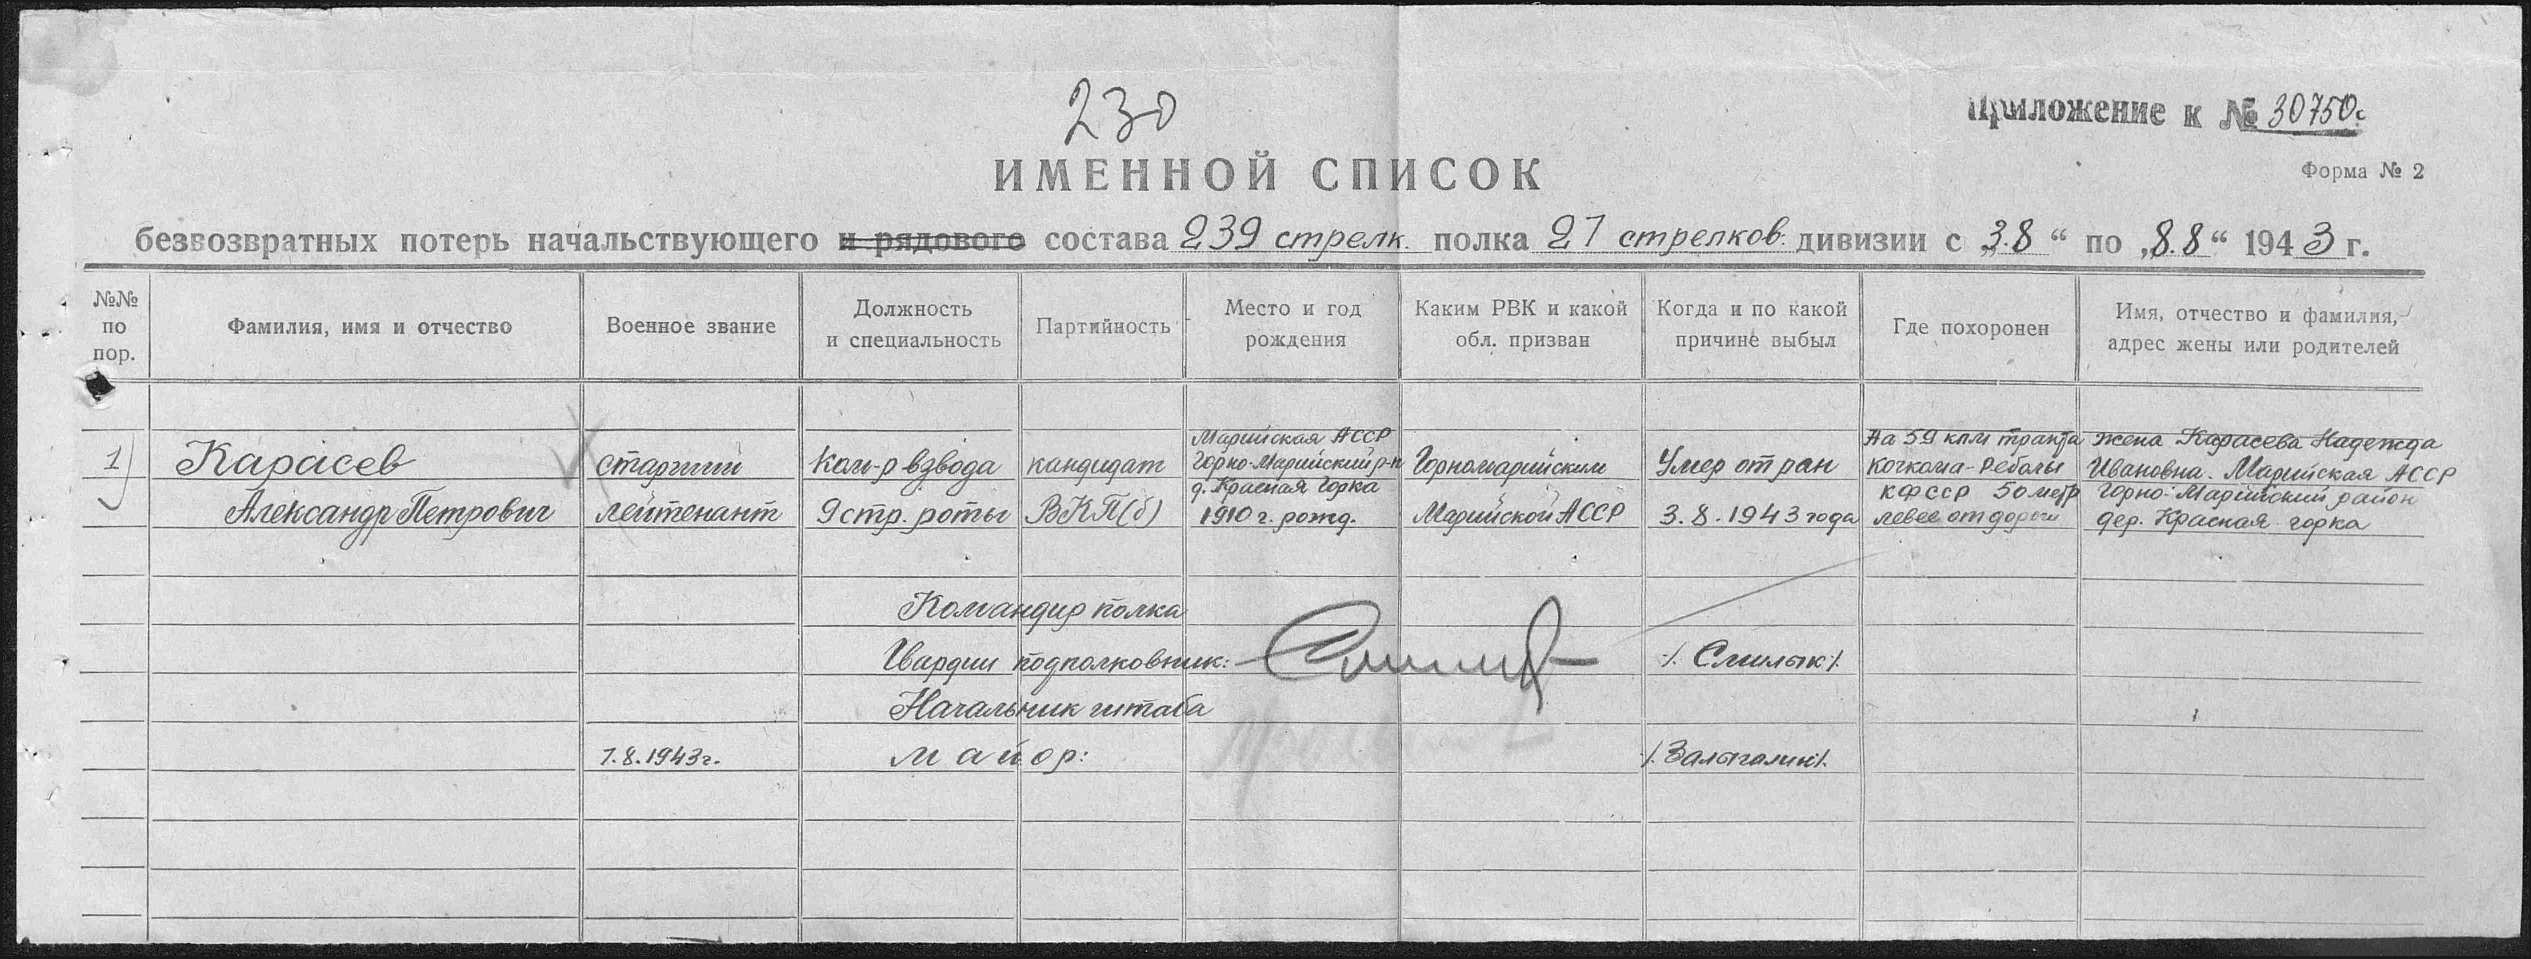 230
Приложение к № 30750с
ИМЕННОЙ СПИСОК
Форма № 2
безвозвратных потерь начальствующего и рядового состава 239 стрелк. полка 27 стрелков. дивизии с „3.8“ по „8.8“ 1943 г.
№№ по пор.
Фамилия, имя и отчество
Военное звание
Должность и специальность
Партийность
Место и год рождения
Каким РВК и какой обл. призван
Когда и по какой причине выбыл
Где похоронен
Имя, отчество и фамилия, адрес жены или родителей
1)
Карасев
Александр Петрович
старший
лейтенант
Ком-р взвода
9 стр. роты
кандидат
ВКП(б)
Марийская АССР
Горно-Марийский р-н
д. Красная Горка
1910 г. рожд.
Горномарийским
Марийской АССР
Умер от ран
3.8.1943 года
На 59 клм тракта
Кочкома-Реболы
КФССР 50 метр
левее от дороги
жена Карасева Надежда
Ивановна. Марийская АССР
Горно-Марийский район
дер. Красная горка
Командир полка
Гвардии подполковник:
/. Смилык /.
Начальник штаба
7.8.1943г.
майор: